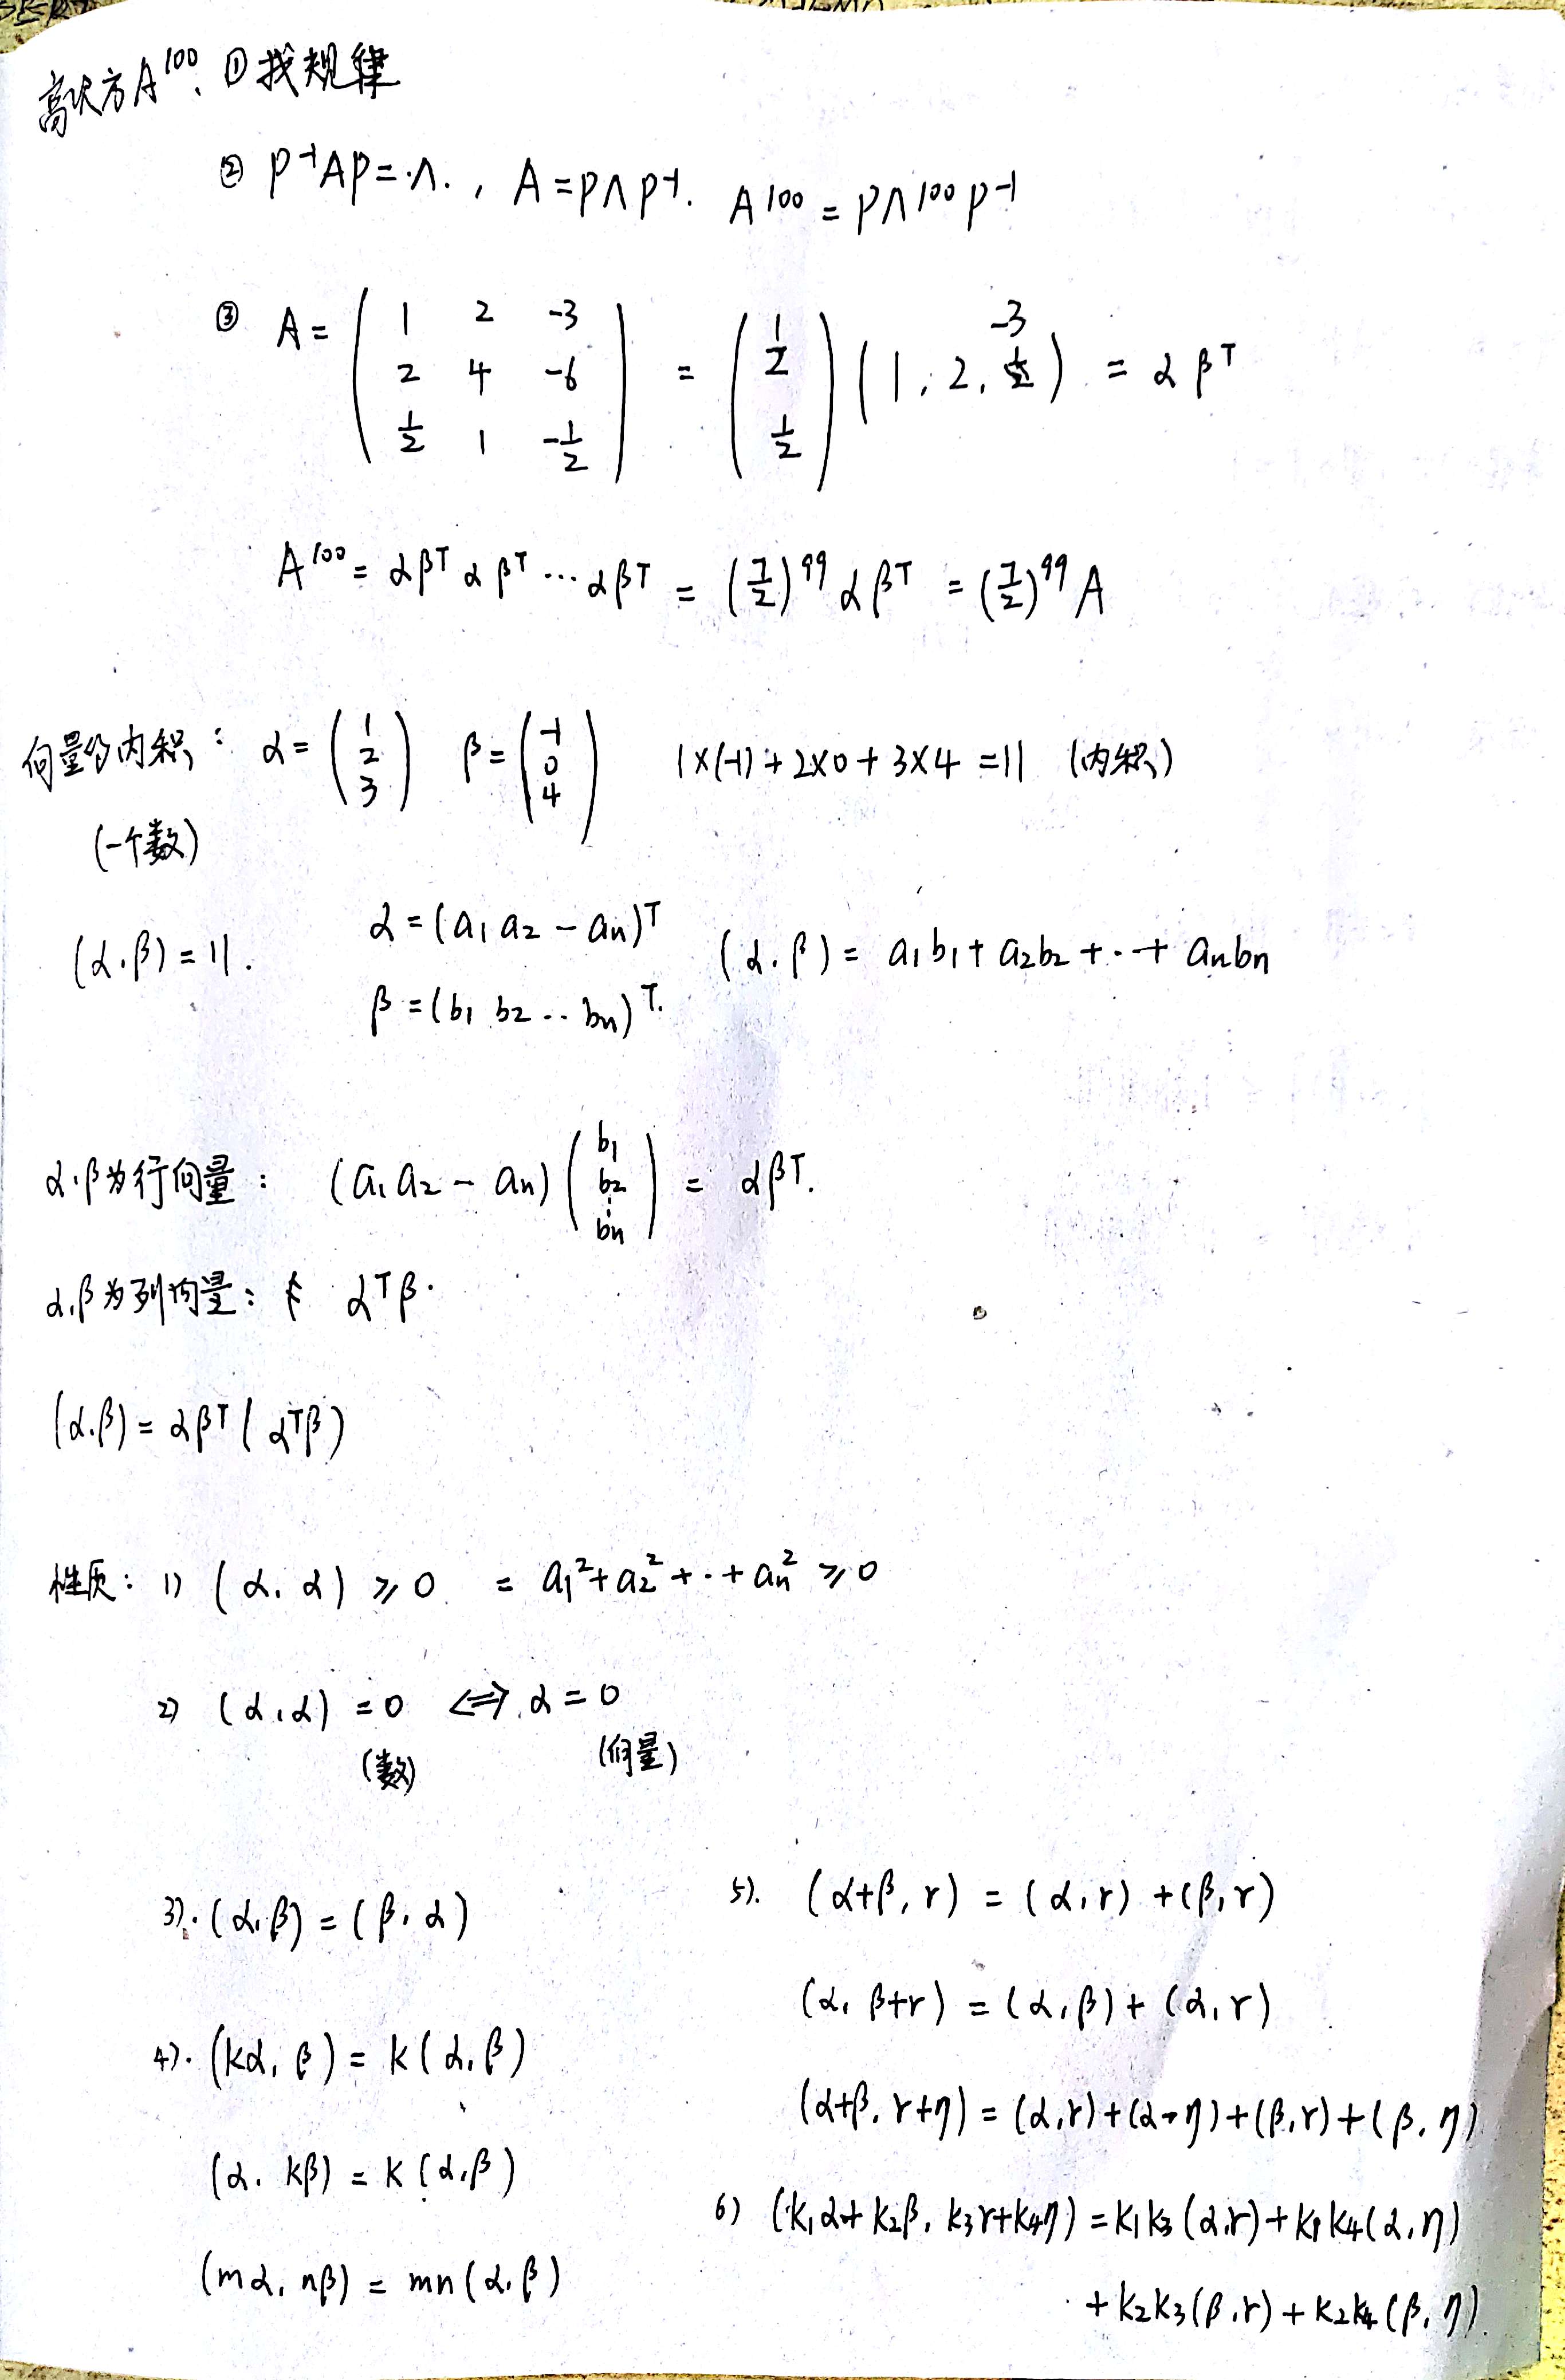 高次方A¹⁰⁰. ①找规律
② P⁻¹AP=Λ., A=PΛP⁻¹. A¹⁰⁰=PΛ¹⁰⁰P⁻¹
③ A = ( 1 2 -3 ; 2 4 -6 ; 1/2 1 -1/2 ) = ( 1 ; 2 ; 1/2 ) (1, 2, -3) = αβᵀ
A¹⁰⁰ = αβᵀαβᵀ···αβᵀ = (7/2)⁹⁹αβᵀ = (7/2)⁹⁹A
向量的内积: α = ( 1 ; 2 ; 3 ) β = ( -1 ; 0 ; 4 ) 1×(-1)+2×0+3×4=11 (内积)
(一个数)
(α.β)=11. α=(a₁ a₂ - aₙ)ᵀ
β=(b₁ b₂ ·· bₙ)ᵀ. (α.β)= a₁b₁+a₂b₂+··+aₙbₙ
α.β为行向量: (a₁ a₂ - aₙ) ( b₁ ; b₂ ; ⋮ ; bₙ ) = αβᵀ.
α.β为列向量: αᵀβ.
(α.β)=αβᵀ(αᵀβ)
性质: 1) (α.α)≥0 = a₁²+a₂²+··+aₙ²≥0
2) (α,α)=0 ⟺ α=0
(数) (向量)
3). (α.β)=(β.α)
4). (kα, β)=k(α.β)
(α. kβ)=k(α.β)
(mα, nβ)=mn(α.β)
5). (α+β, r)=(α,r)+(β,r)
(α, β+r)=(α,β)+(α,r)
(α+β, r+η)=(α,r)+(α+η)+(β,r)+(β,η)
6) (k₁α+k₂β, k₃r+k₄η)=k₁k₃(α,r)+k₁k₄(α,η)
+k₂k₃(β,r)+k₂k₄(β,η)